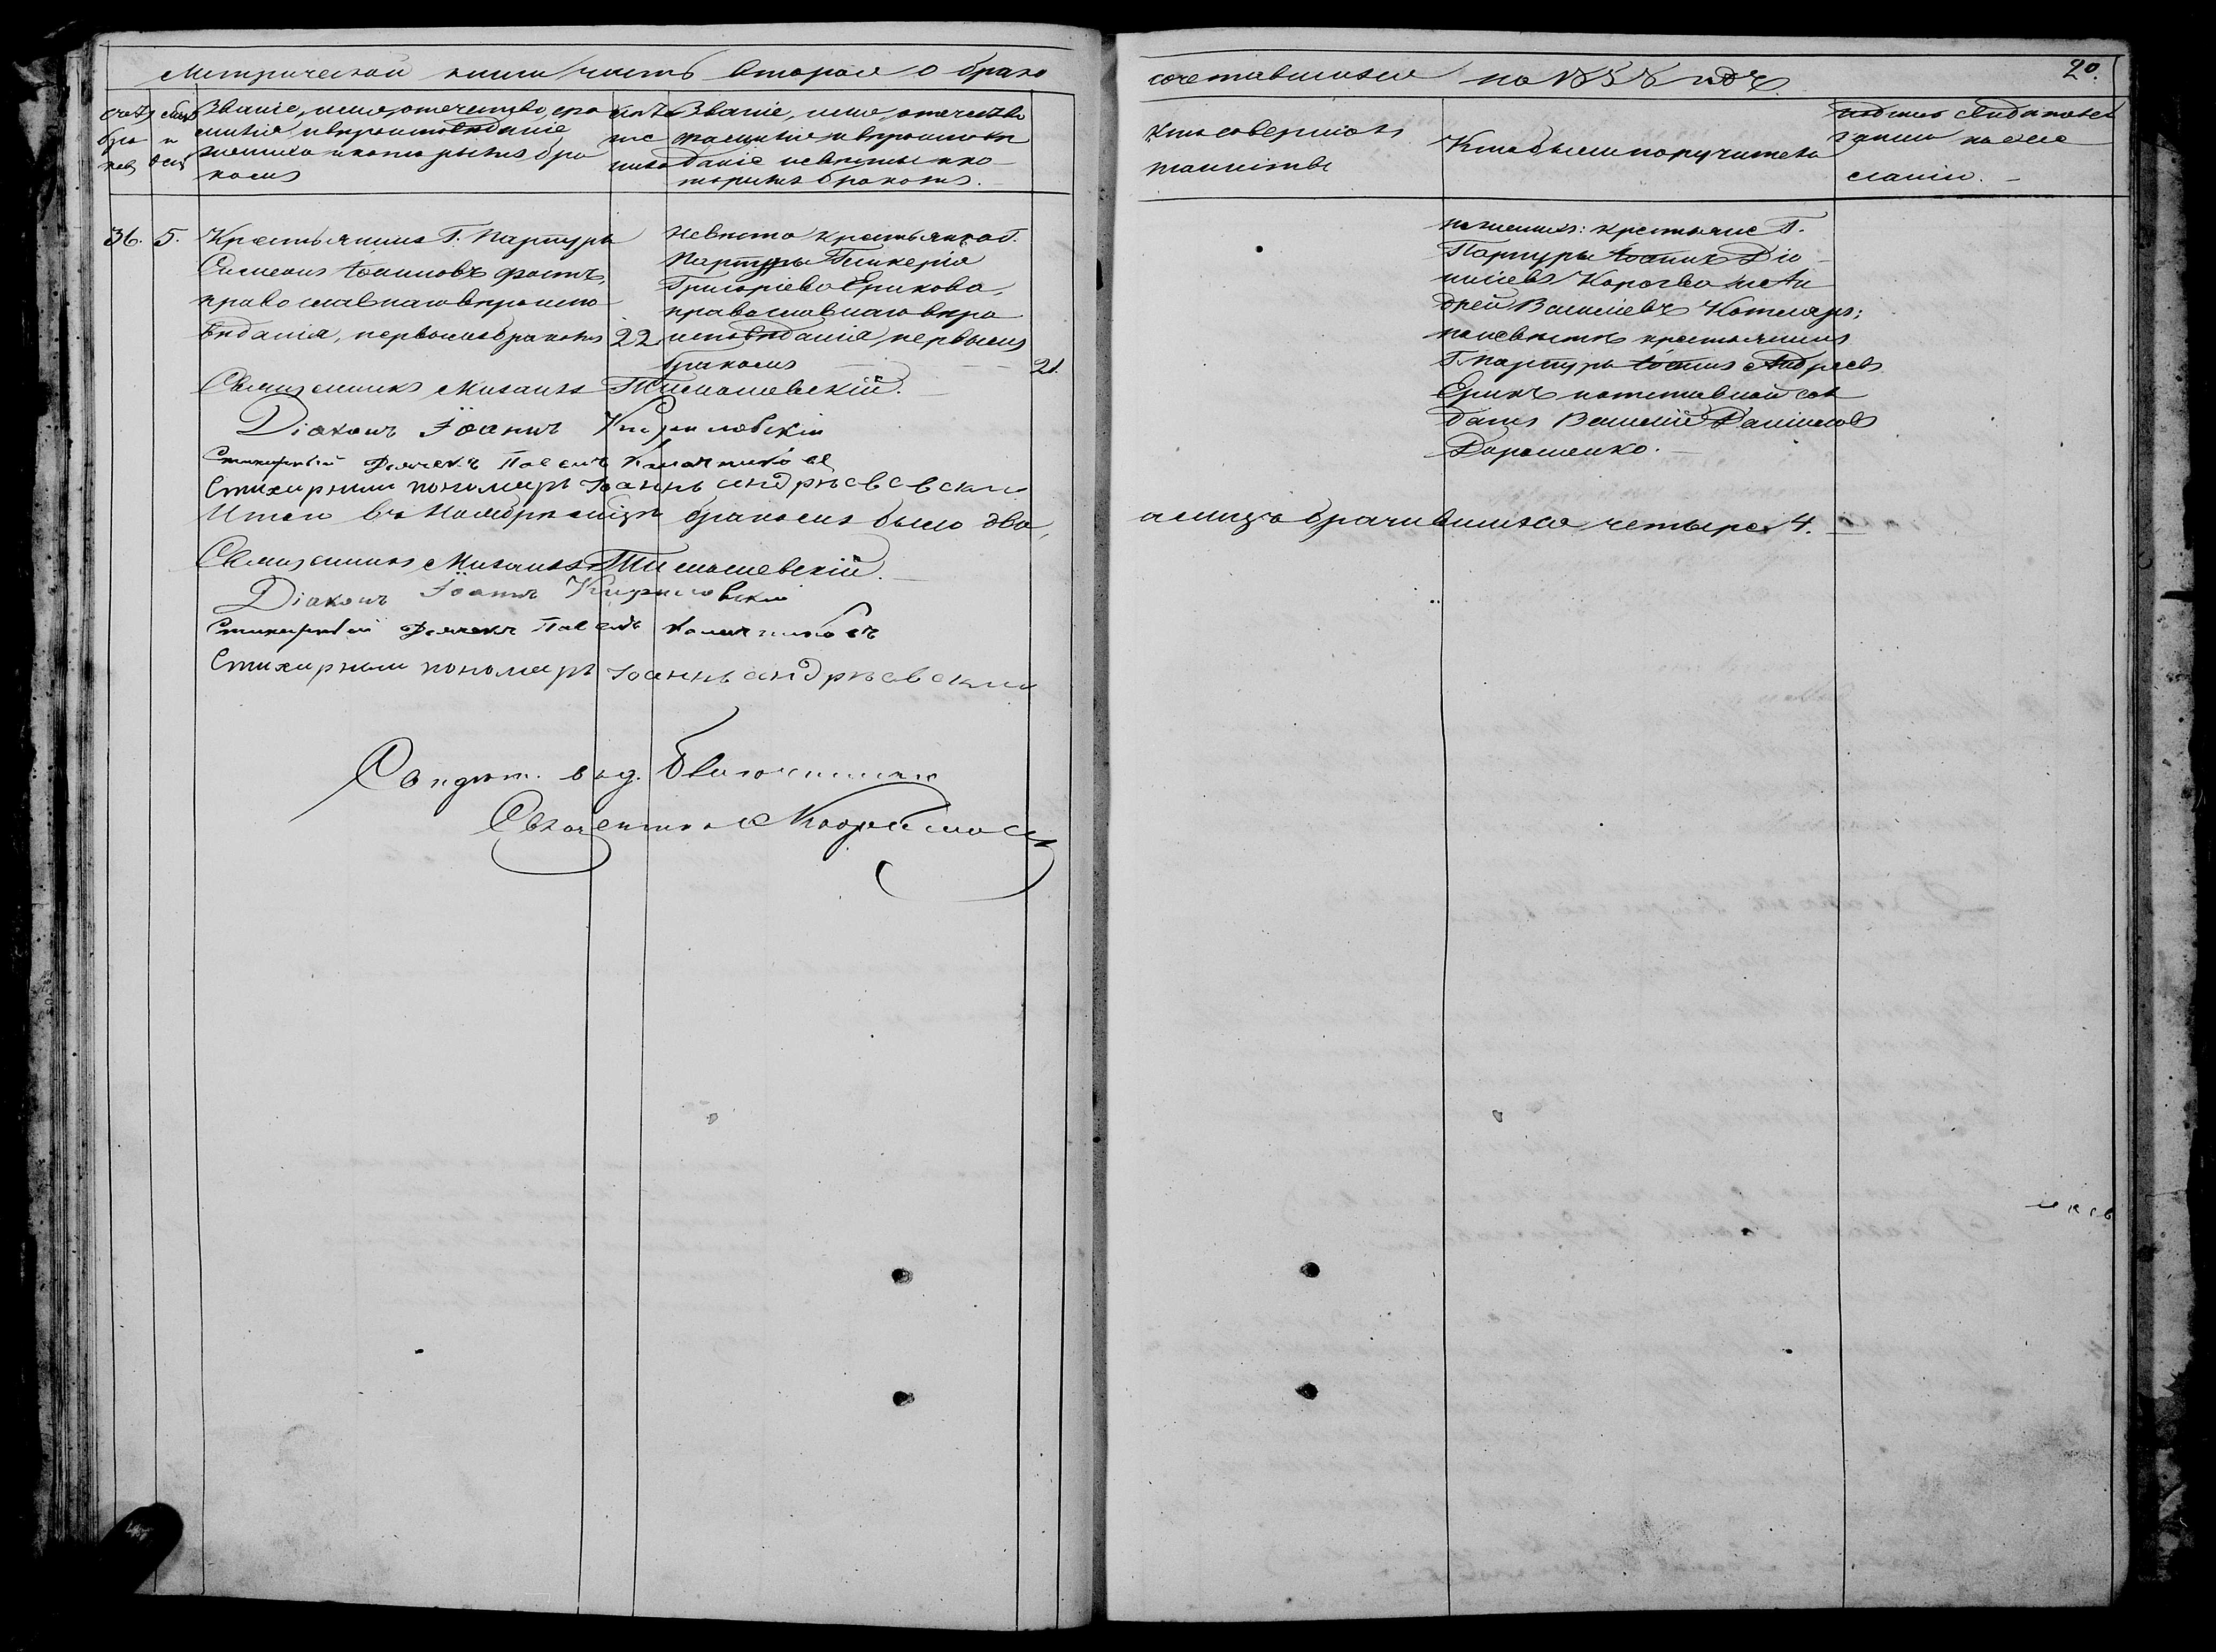 Метрической книги часть вторая о брако
сочетавшихся на 1858 годъ
20.
Счетъ
бра
ковъ
и
Званіе, имя, отечество, фа
милія и вѣроисповѣданіе
жениха и которымъ бра
комъ
Званіе, имя, отечество
фамилія и вѣроисповѣ
даніе невѣсты и ко
торымъ бракомъ.
Кто совершалъ
таинство
Кто были поручители
36.
5.
Крестьянинъ Г. Партуры
Симеонъ Іоанновъ
православнаго вѣроиспо
вѣданія, первымъ бракомъ
22
Невѣста крестьянка Г.
Партуры Гликерія
Григоріева Ерикова,
православнаго вѣро
исповѣданія, первымъ
бракомъ
21.
по женихѣ: крестьяне Г.
Партуры Іоаннъ Діо
нисіевъ и Ан
дрей Василіевъ Котляръ;
по невѣстѣ крестьянинъ
Г. Партуры Іоаннъ Андреевъ
Ерикъ и отставной сол
датъ Василій Даніиловъ
Дорошенко.
Священникъ Михаилъ Тимошевскій.
Діаконъ Іоаннъ Кириловскій
Стихарный Дьячекъ Павелъ
Стихарный пономарь Іоаннъ Андріевскій
Итого въ Ноябрѣ мѣсяцѣ браковъ было два,
а лицъ брачившихся четыре 4.
Священникъ Михаилъ Тимошевскій.
Діаконъ Іоаннъ Кириловскій
Стихарный Дьячекъ Павелъ
Стихарный пономарь Іоаннъ Андріевскій
Священникъ